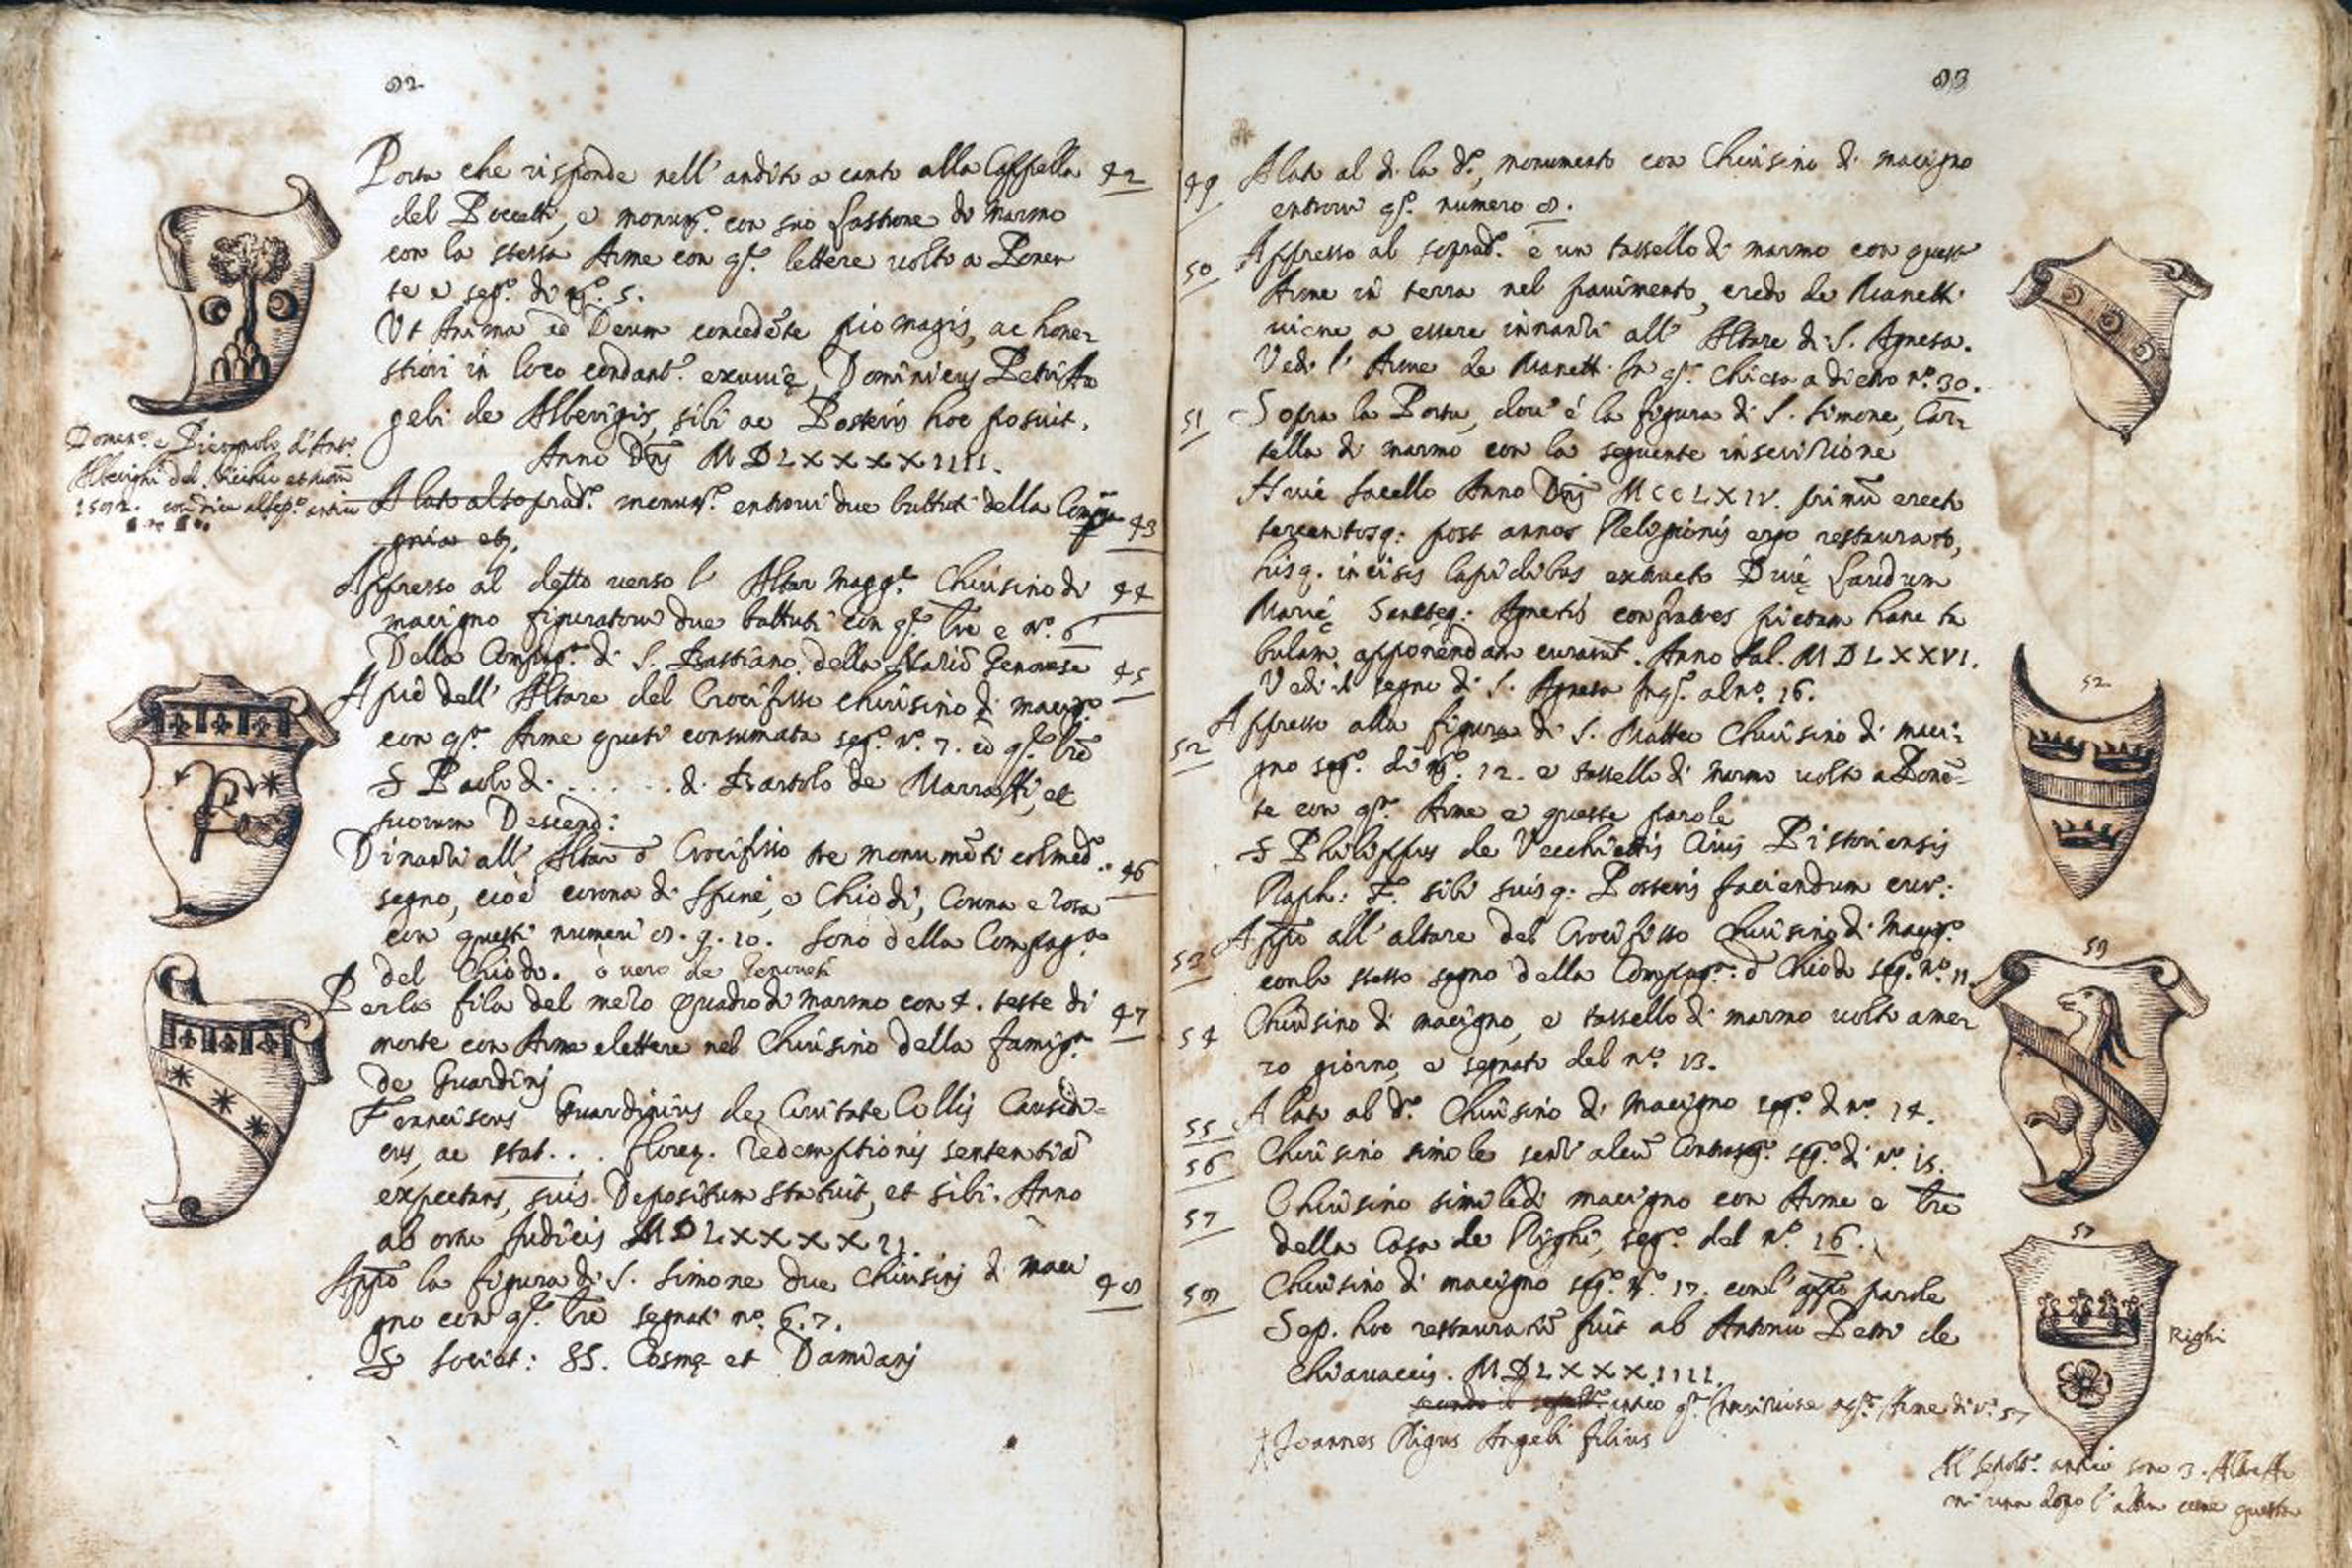 82
Porta che risponde nell' andito a canto alla Cappella 42
del Boccelli, e monum.to con suo lastrone di marmo
con la stessa Arme con q.te lettere volto a Ponen
te e seg.to di n.o 5.
Ut Anima ad Deum concedēte pio magis, ac hone-
stiori in loco condant.r exuvię, Dominicus Petri An
geli de Alberigis, sibi ac Posteris hoc posuit.
Anno Dnj MDLXXXXIIII.
Domen.o e Pierpaolo d'Ant.o
Alberighi del
1592.
A lato al soprad.o monum.to entrovi due battuti della Compa 43
gnia etc.
Appresso al detto verso l' Altar magg.re Chiusino di 44
macigno figuratovi due battuti con q.te lre e n.o 6
Della Comp.a di S. Bastiano della Natiō Genovese 45
A piè dell' Altare del Crocifisso chiusino di macig.o
con q.ta Arme quasi consumata seg.o n.o 7. cō q.te lre
S Paolo di . . . . . . di Bartolo de Marratti, et
suorum Descend:
Dinanzi all' Altar d Crocifisso tre monumēti col med.o 46
segno, cioè corona di spine, e Chiodi, Corona e
con questi numeri 8. 9. 10. sono della Compag.a
del Chiodo. o vero de Genovesi
Per la fila del mezo quadro di marmo con 4. teste di 47
morte con Arme e lettere nel Chiusino della famig.a
de Guardinj
Franciscus Guardinius de Civitate Collis Causidi-
cus, ac stat. . . floren. redemptionis sententiā
expectans, suis Depositum statuit, et sibi. Anno
ab orbe Judicis MDLXXXXII.
App.o la figura di S. Simone due Chiusinj di maci 48
gno con q.te lre segnati n.o 6. 7.
S societ: SS. Cosmę et Damianj
83
49 A lato al di là d.o, monumento con Chiusino di macigno
entrovi q.o numero 8.
50 Appresso al soprad.o è un tassello di marmo con questa
Arme in terra nel pavimento, credo de Manetti
viene a essere innanzi all' Altare di S. Agnesa.
Vedi l' Arme de Manetti in q.a chiesa a dietro n.o 30.
51 Sopra la Porta, dov' è la figura di S. Simone, Car-
tella di marmo con la seguente inscrizione
Huic sacello Anno Dnj MCCLXIV. primū erecto
tercentosq: post annos Religionis ergo restaurato,
hisq. incisis lapidibus extructo Divę Laudum
Marię Sanctęq: Agnetis confratres pictam hanc ta
bulam apponendam curarunt. Anno Sal. MDLXXVI.
Vedi il segno di S. Agnesa in q.o al n.o 16.
52 Appresso alla figura di S. Matteo Chiusino di maci-
gno seg.o di n.o 12. e tassello di marmo volto a Ponē-
te con q.ta Arme e queste parole
S Philippus de Vecchiettis Civis Pistoriensis
Raph: F. sibi suisq: Posteris faciendum cur:
53 App.o all' altare del Crocifisso Chiusino di macig.o
con lo stesso segno della Compag.a d Chiodo seg.o n.o 11.
54 Chiusino di macigno, e tassello di marmo volto a mez
zo giorno, e segnato del n.o 13.
55 A lato al d.o Chiusino di macigno seg.o di n.o 14.
56 Chiusino simile senz' alcū Contraseg.o seg.o di n.o 15.
57 Chiusino simile di macigno con Arme e lre
della Casa de Righi, seg.o del n.o 16.
58 Chiusino di macigno seg.o n.o 17. con l' app.o parole
Sep. hoc restauratū fuit ab Antonio Petri de
Chiavaccis. MDLXXXIIII.
Arme di n.o 57
Joannes Rigus Angeli filius
52
53
57
Righi
Al sepolt.o antico sono 3.
una dopo l' altra come questa